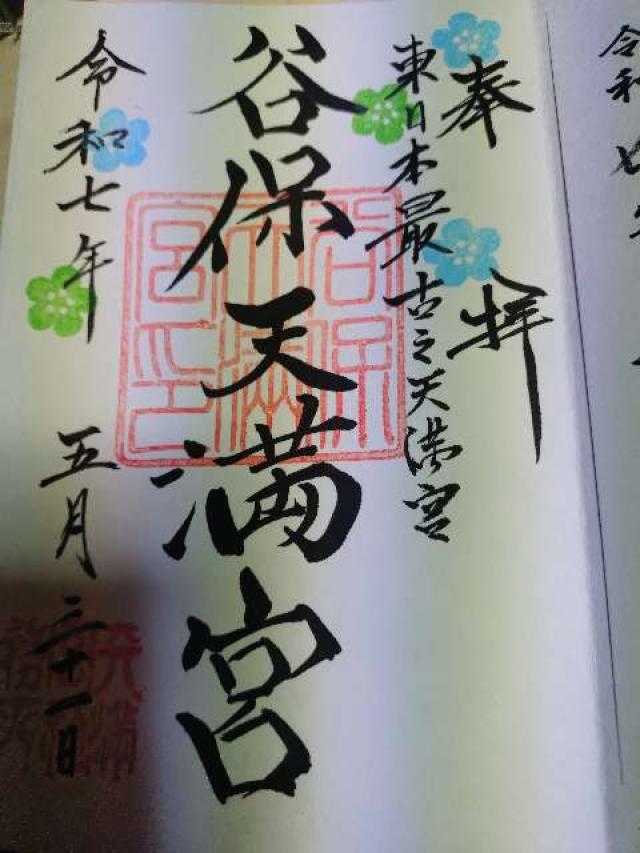 奉拝
東日本最古之天満宮
谷保天満宮
谷保天満宮印
令和七年 五月三十一日
令和七年